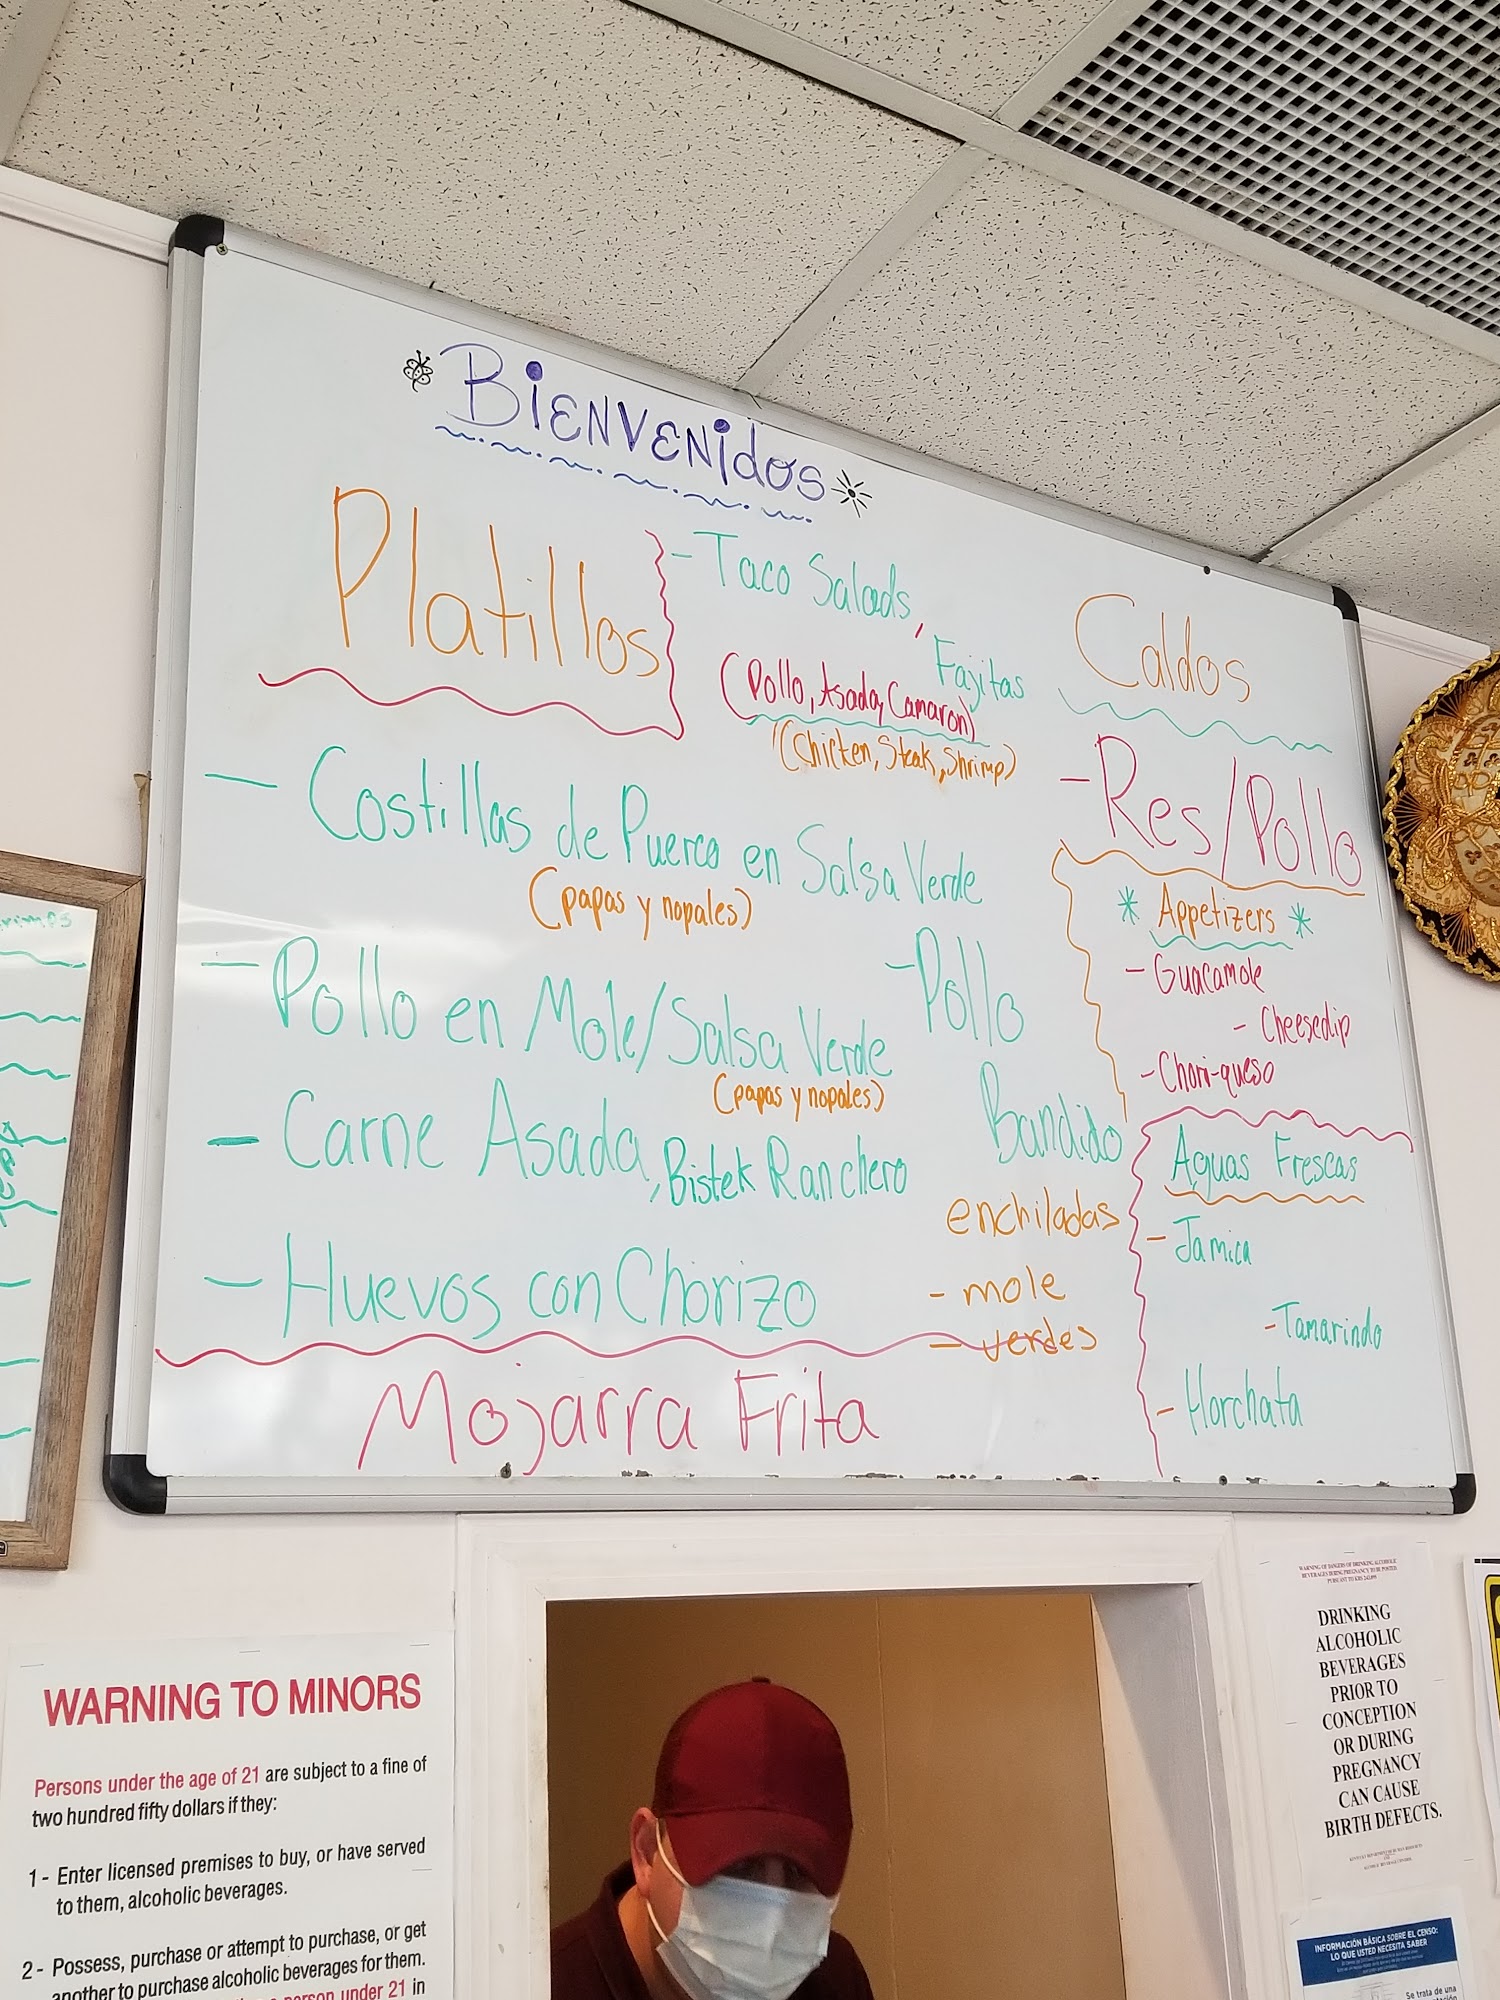 Bienvenidos
Platillos
- Taco Salads,
Fajitas
(Pollo, Asada, Camaron)
(Chicken, Steak, Shrimp)
- Costillas de Puerco en Salsa Verde
(papas y nopales)
- Pollo en Mole/Salsa Verde
(papas y nopales)
- Carne Asada, Bistek Ranchero
- Huevos con Chorizo
Mojarra Frita
- Pollo
Bandido
enchiladas
- mole
- verdes
Caldos
- Res/Pollo
* Appetizers *
- Guacamole
- Cheesedip
- Chori-queso
Aguas Frescas
- Jamica
- Tamarindo
- Horchata
WARNING TO MINORS
Persons under the age of 21 are subject to a fine of
two hundred fifty dollars if they:
1 - Enter licensed premises to buy, or have served
to them, alcoholic beverages.
2 - Possess, purchase or attempt to purchase, or get
another to purchase alcoholic beverages for them.
person under 21 in
WARNING OF DANGERS OF DRINKING ALCOHOLIC
BEVERAGES DURING PREGNANCY TO BE POSTED
PURSUANT TO KRS 243.895
DRINKING
ALCOHOLIC
BEVERAGES
PRIOR TO
CONCEPTION
OR DURING
PREGNANCY
CAN CAUSE
BIRTH DEFECTS.
INFORMACIÓN BÁSICA SOBRE EL CENSO:
LO QUE USTED NECESITA SABER
Se trata de una